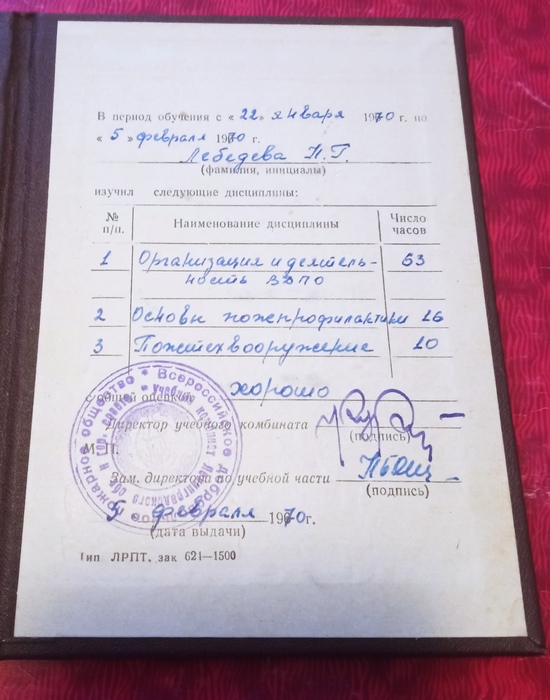 В период обучения с «22» января 1970 г. по
«5» февраля 1970 г.
Лебедева Н.Г.
(фамилия, инициалы)
изучил следующие дисциплины:
№ п/п. Наименование дисциплины Число часов
1 Организация и деятель- 63
ность ВДПО
2 Основы пожепрофилактики 16
3 Пожтехвооружение 10
с общей оценкой хорошо
Директор учебного комбината
(подпись)
М.П.
Зам. директора по учебной части
(подпись)
5 февраля 1970г.
(дата выдачи)
Тип ЛРПТ, зак 621—1500
Всероссийское добровольное пожарное общество